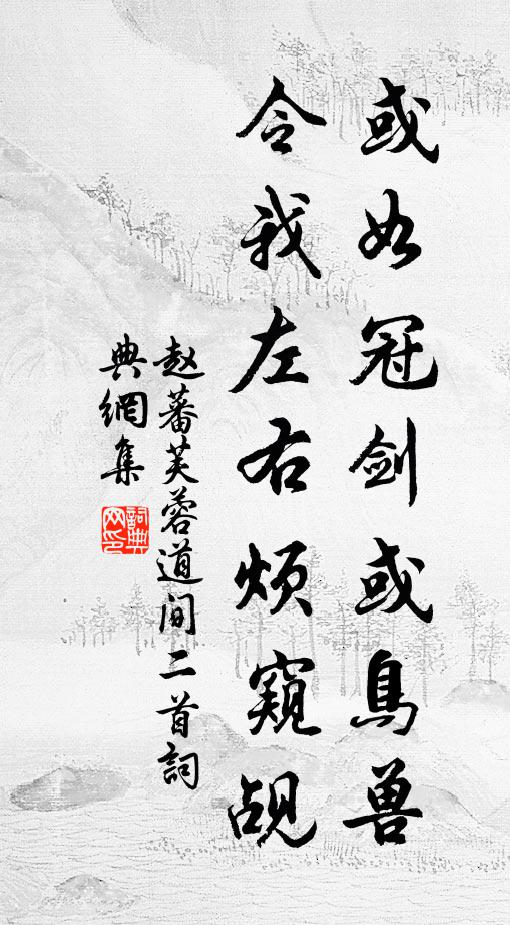 或如冠剑或鳥兽
令我左右烦窺觇
赵蕃芙蓉道间二首詞
典網集
詞典网印